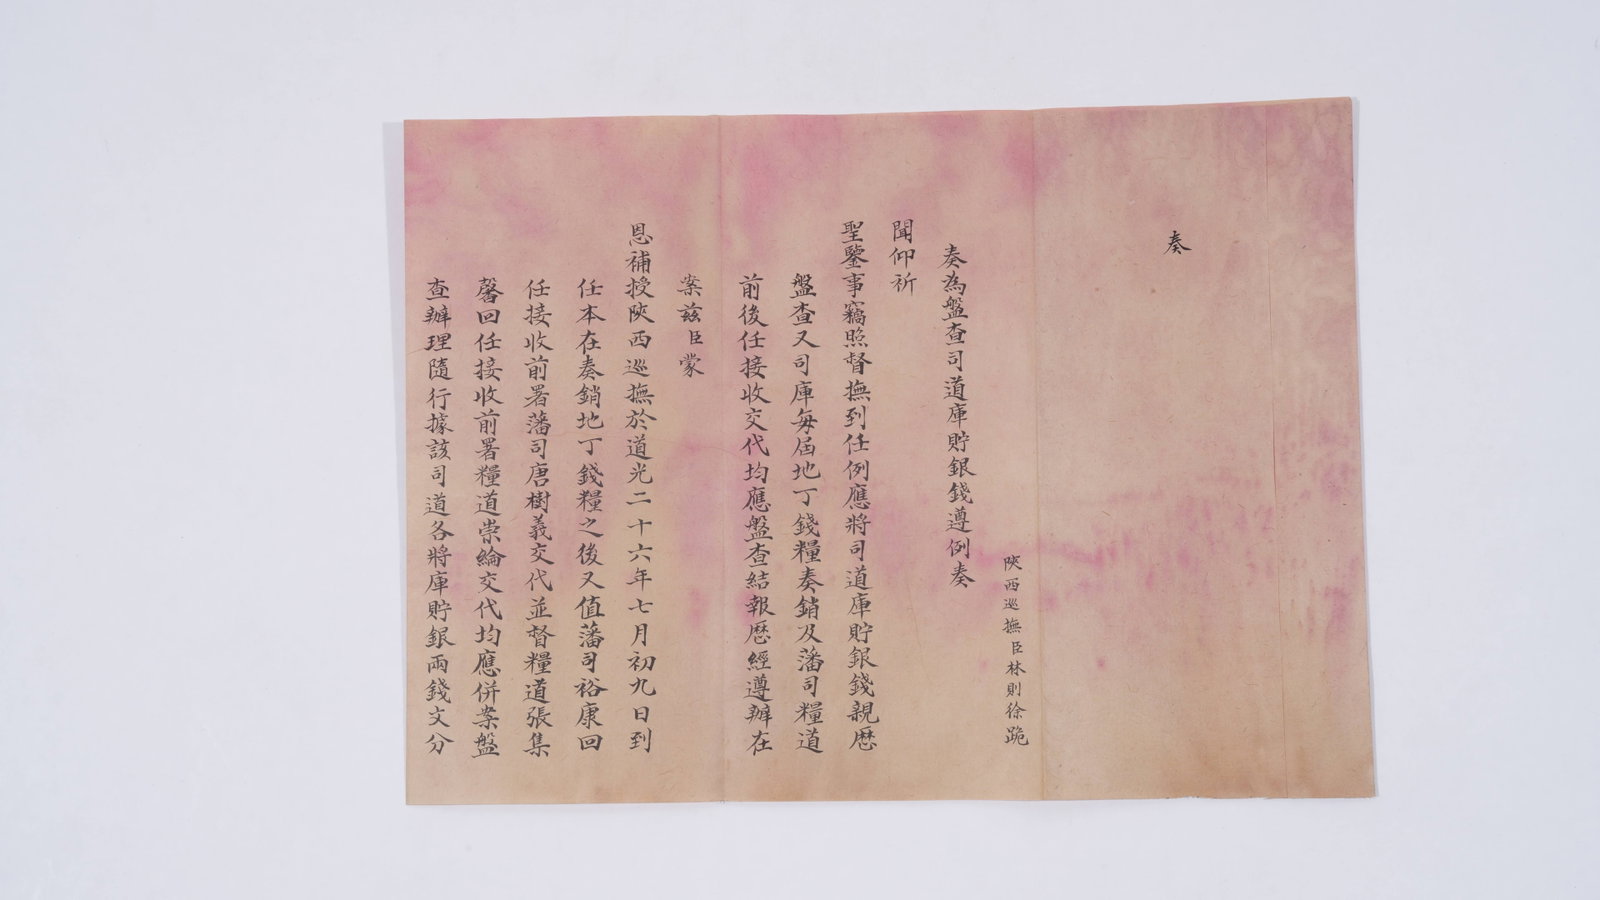 奏
陝西巡撫臣林則徐跪
奏為盤查司道庫貯銀錢遵例奏
聞仰祈
聖鑒事竊照督撫到任例應將司道庫貯銀錢親歷
盤查又司庫每屆地丁錢糧奏銷及藩司糧道
前後任接收交代均應盤查結報歷經遵辦在
案茲臣蒙
恩補授陝西巡撫於道光二十六年七月初九日到
任本在奏銷地丁錢糧之後又值藩司裕康回
任接收前署藩司唐樹義交代並督糧道張集
馨回任接收前署糧道崇綸交代均應併案盤
查辦理隨行據該司道各將庫貯銀兩錢文分